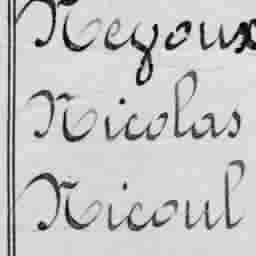 Neyoux
Nicolas
Nicoul